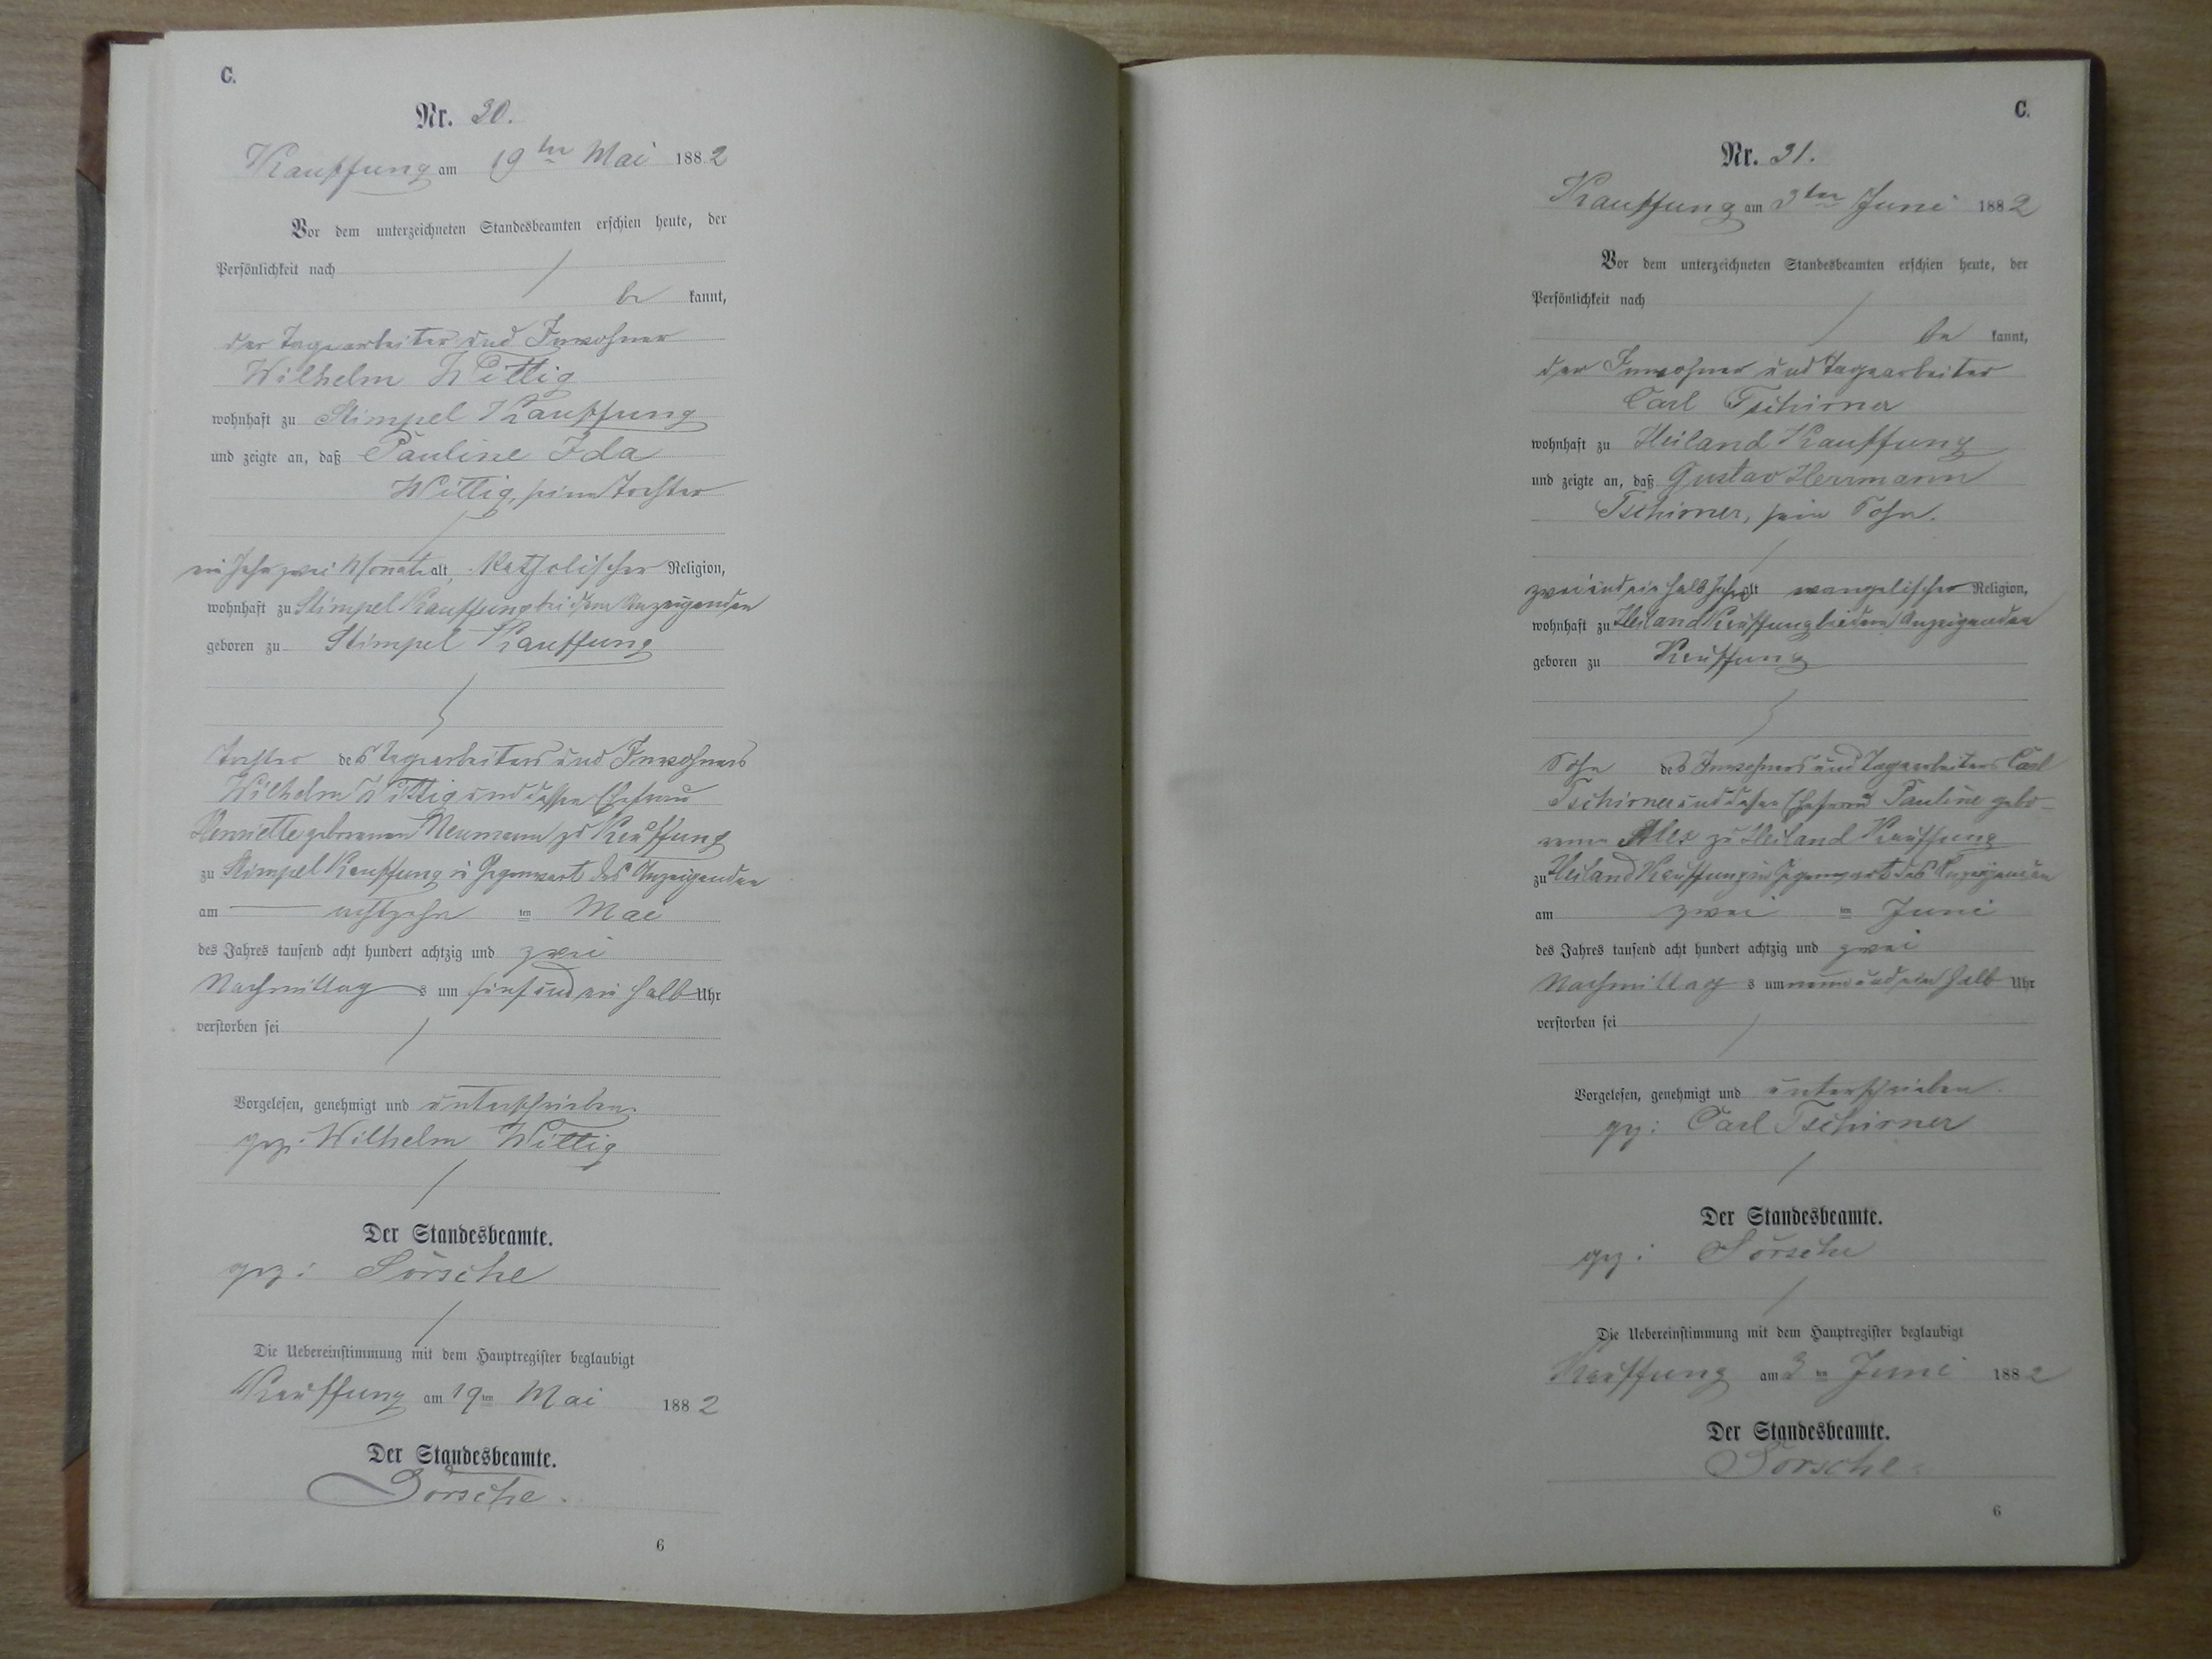 C.
Nr. 30.
Kauffung am 19ten Mai 1882
Vor dem unterzeichneten Standesbeamten erschien heute, der
Persönlichkeit nach
be kannt,
der Tagearbeiter und Inwohner
Wilhelm Wittig
wohnhaft zu Stimpel Kauffung
und zeigte an, daß Pauline Ida
Wittig, seine Tochter
ein Jahr zwei Monate alt, katholischer Religion,
wohnhaft zu Stimpel Kauffung bei dem Anzeigenden
geboren zu Stimpel Kauffung
Tochter des Tagearbeiters und Inwohners
Wilhelm Wittig und dessen Ehefrau
Henriette geborenen Neumann zu Kauffung
zu Stimpel Kauffung in Gegenwart des Anzeigenden
am achtzehn ten Mai
des Jahres tausend acht hundert achtzig und zwei
Nachmittag s um fünf und ein halb Uhr
verstorben sei
Vorgelesen, genehmigt und unterschrieben.
gez: Wilhelm Wittig
Der Standesbeamte.
gez: Sörsche
Die Uebereinstimmung mit dem Hauptregister beglaubigt
Kauffung am 19ten Mai 1882
Der Standesbeamte.
Sörsche.
6
C.
Nr. 31.
Kauffung am 3ten Juni 1882
Vor dem unterzeichneten Standesbeamten erschien heute, der
Persönlichkeit nach
be kannt,
der Inwohner und Tagearbeiter
Carl Tschirner
wohnhaft zu Heiland Kauffung
und zeigte an, daß Gustav Herrmann
Tschirner, sein Sohn.
zwei und ein halb Jahr alt evangelischer Religion,
wohnhaft zu Heiland Kauffung bei dem Anzeigenden
geboren zu Kauffung
Sohn des Inwohners und Tagearbeiters Carl
Tschirner und dessen Ehefrau Pauline gebo-
renen zu Heiland Kauffung
zu Heiland Kauffung in Gegenwart des Anzeigenden
am zwei ten Juni
des Jahres tausend acht hundert achtzig und zwei
Nachmittag s um neun und ein halb Uhr
verstorben sei
Vorgelesen, genehmigt und unterschrieben.
gez: Carl Tschirner
Der Standesbeamte.
gez: Sörsche
Die Uebereinstimmung mit dem Hauptregister beglaubigt
Kauffung am 3ten Juni 1882
Der Standesbeamte.
Sörsche.
6